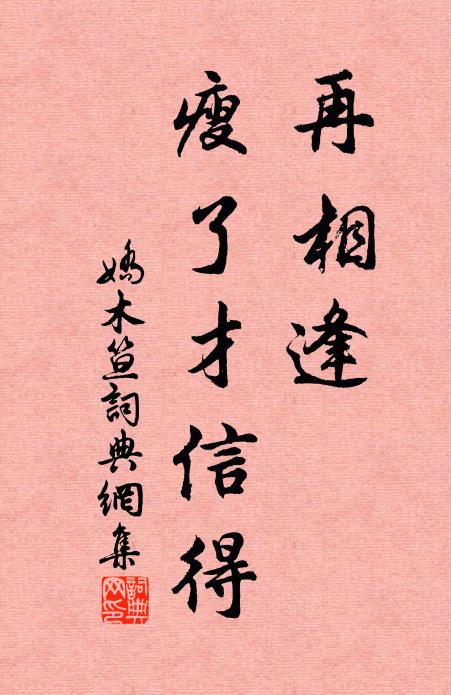 再相逢
瘦了才信得
嬌木笪詞典網集
詞典网印